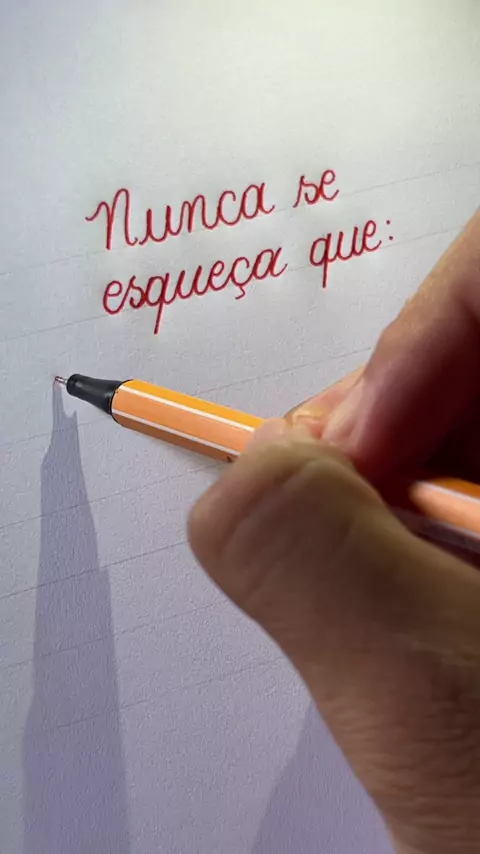 Nunca se
esqueça que: